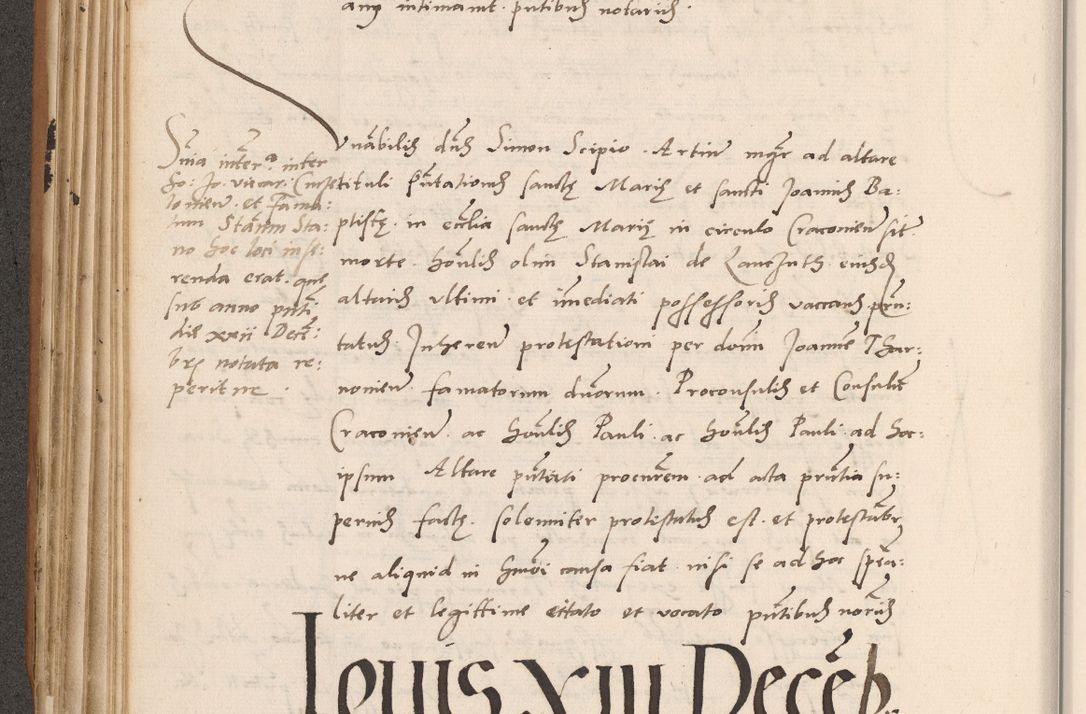 any intimant pūtibus notariis.
Vnābilis dn̄s Simon Scipio Artium mgr̄ ad altare
tituli Pūtationis sanctę Marię et sancti Joannis Ba:
ptistę in ecclīa sanctę Marię in circulo Cracovien̄ sit
morte hōnlis olim Stanislai de Lanczuth eiusd
altaris vltimi et imēdiati possessoris vacans pn̄:
tatus Inheren̄ protestationi per dōm Joannē Thar:
nouien̄ famatorum dn̄orum Proconsulis et Consulū
Cracouien̄ ac hōnlis Pauli ac hōnlis Pauli ad hoc
ipsum Altare pn̄tati procur̄em ad acta prn̄tia su:
perius factę solenniter protestatus est et protestābr
ne aliquid in hmōi causa fiat nisi se ad hoc specā:
liter et legittime citato et vocato pn̄tibus notār̄is
Sn̄ia inter inter
ho: Jo. vicar: Cur
louien̄ et Fama:
tum Stan̄m Sta:
no hoc loci inse:
renda erat que
sub anno pn̄ti
die xxii Decē:
bris notata re:
perit ne.
Iouis XIII Decēb